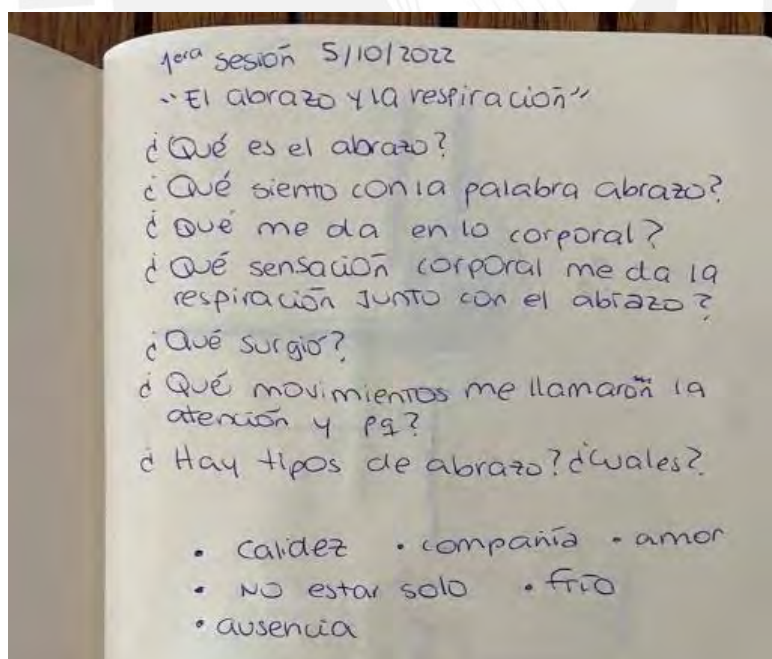 1era sesión 5/10/2022
"El abrazo y la respiración"
¿Qué es el abrazo?
¿Qué siento con la palabra abrazo?
¿Qué me da en lo corporal?
¿Qué sensación corporal me da la
respiración junto con el abrazo?
¿Qué surgió?
¿Qué movimientos me llamarón la
atención y pq?
¿Hay tipos de abrazo? ¿cuales?
• calidez • compañía • amor
• NO estar solo • frío
• ausencia